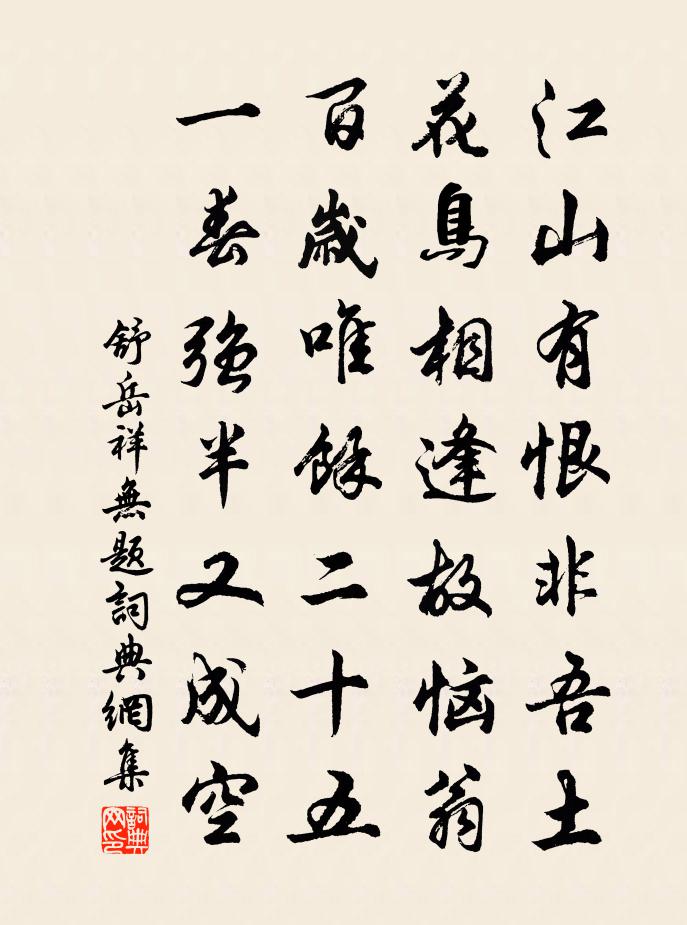 江山有恨非吾土
花鳥相逢故恼翁
百歲唯餘二十五
一春強半又成空
舒岳祥無题詞典網集
詞典网印